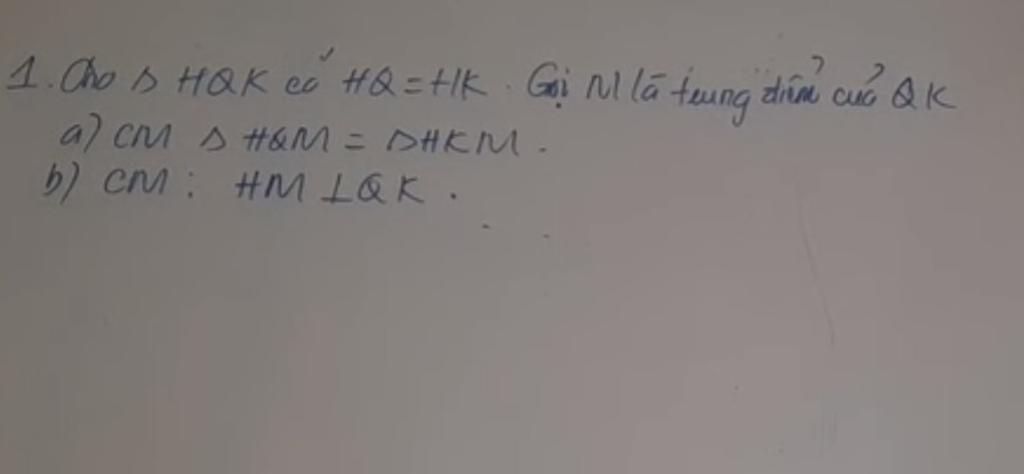 1. Cho Δ HQK có HQ = HK. Gọi M là trung điểm của QK
a) CM Δ HQM = ΔHKM.
b) CM: HM ⊥ QK.